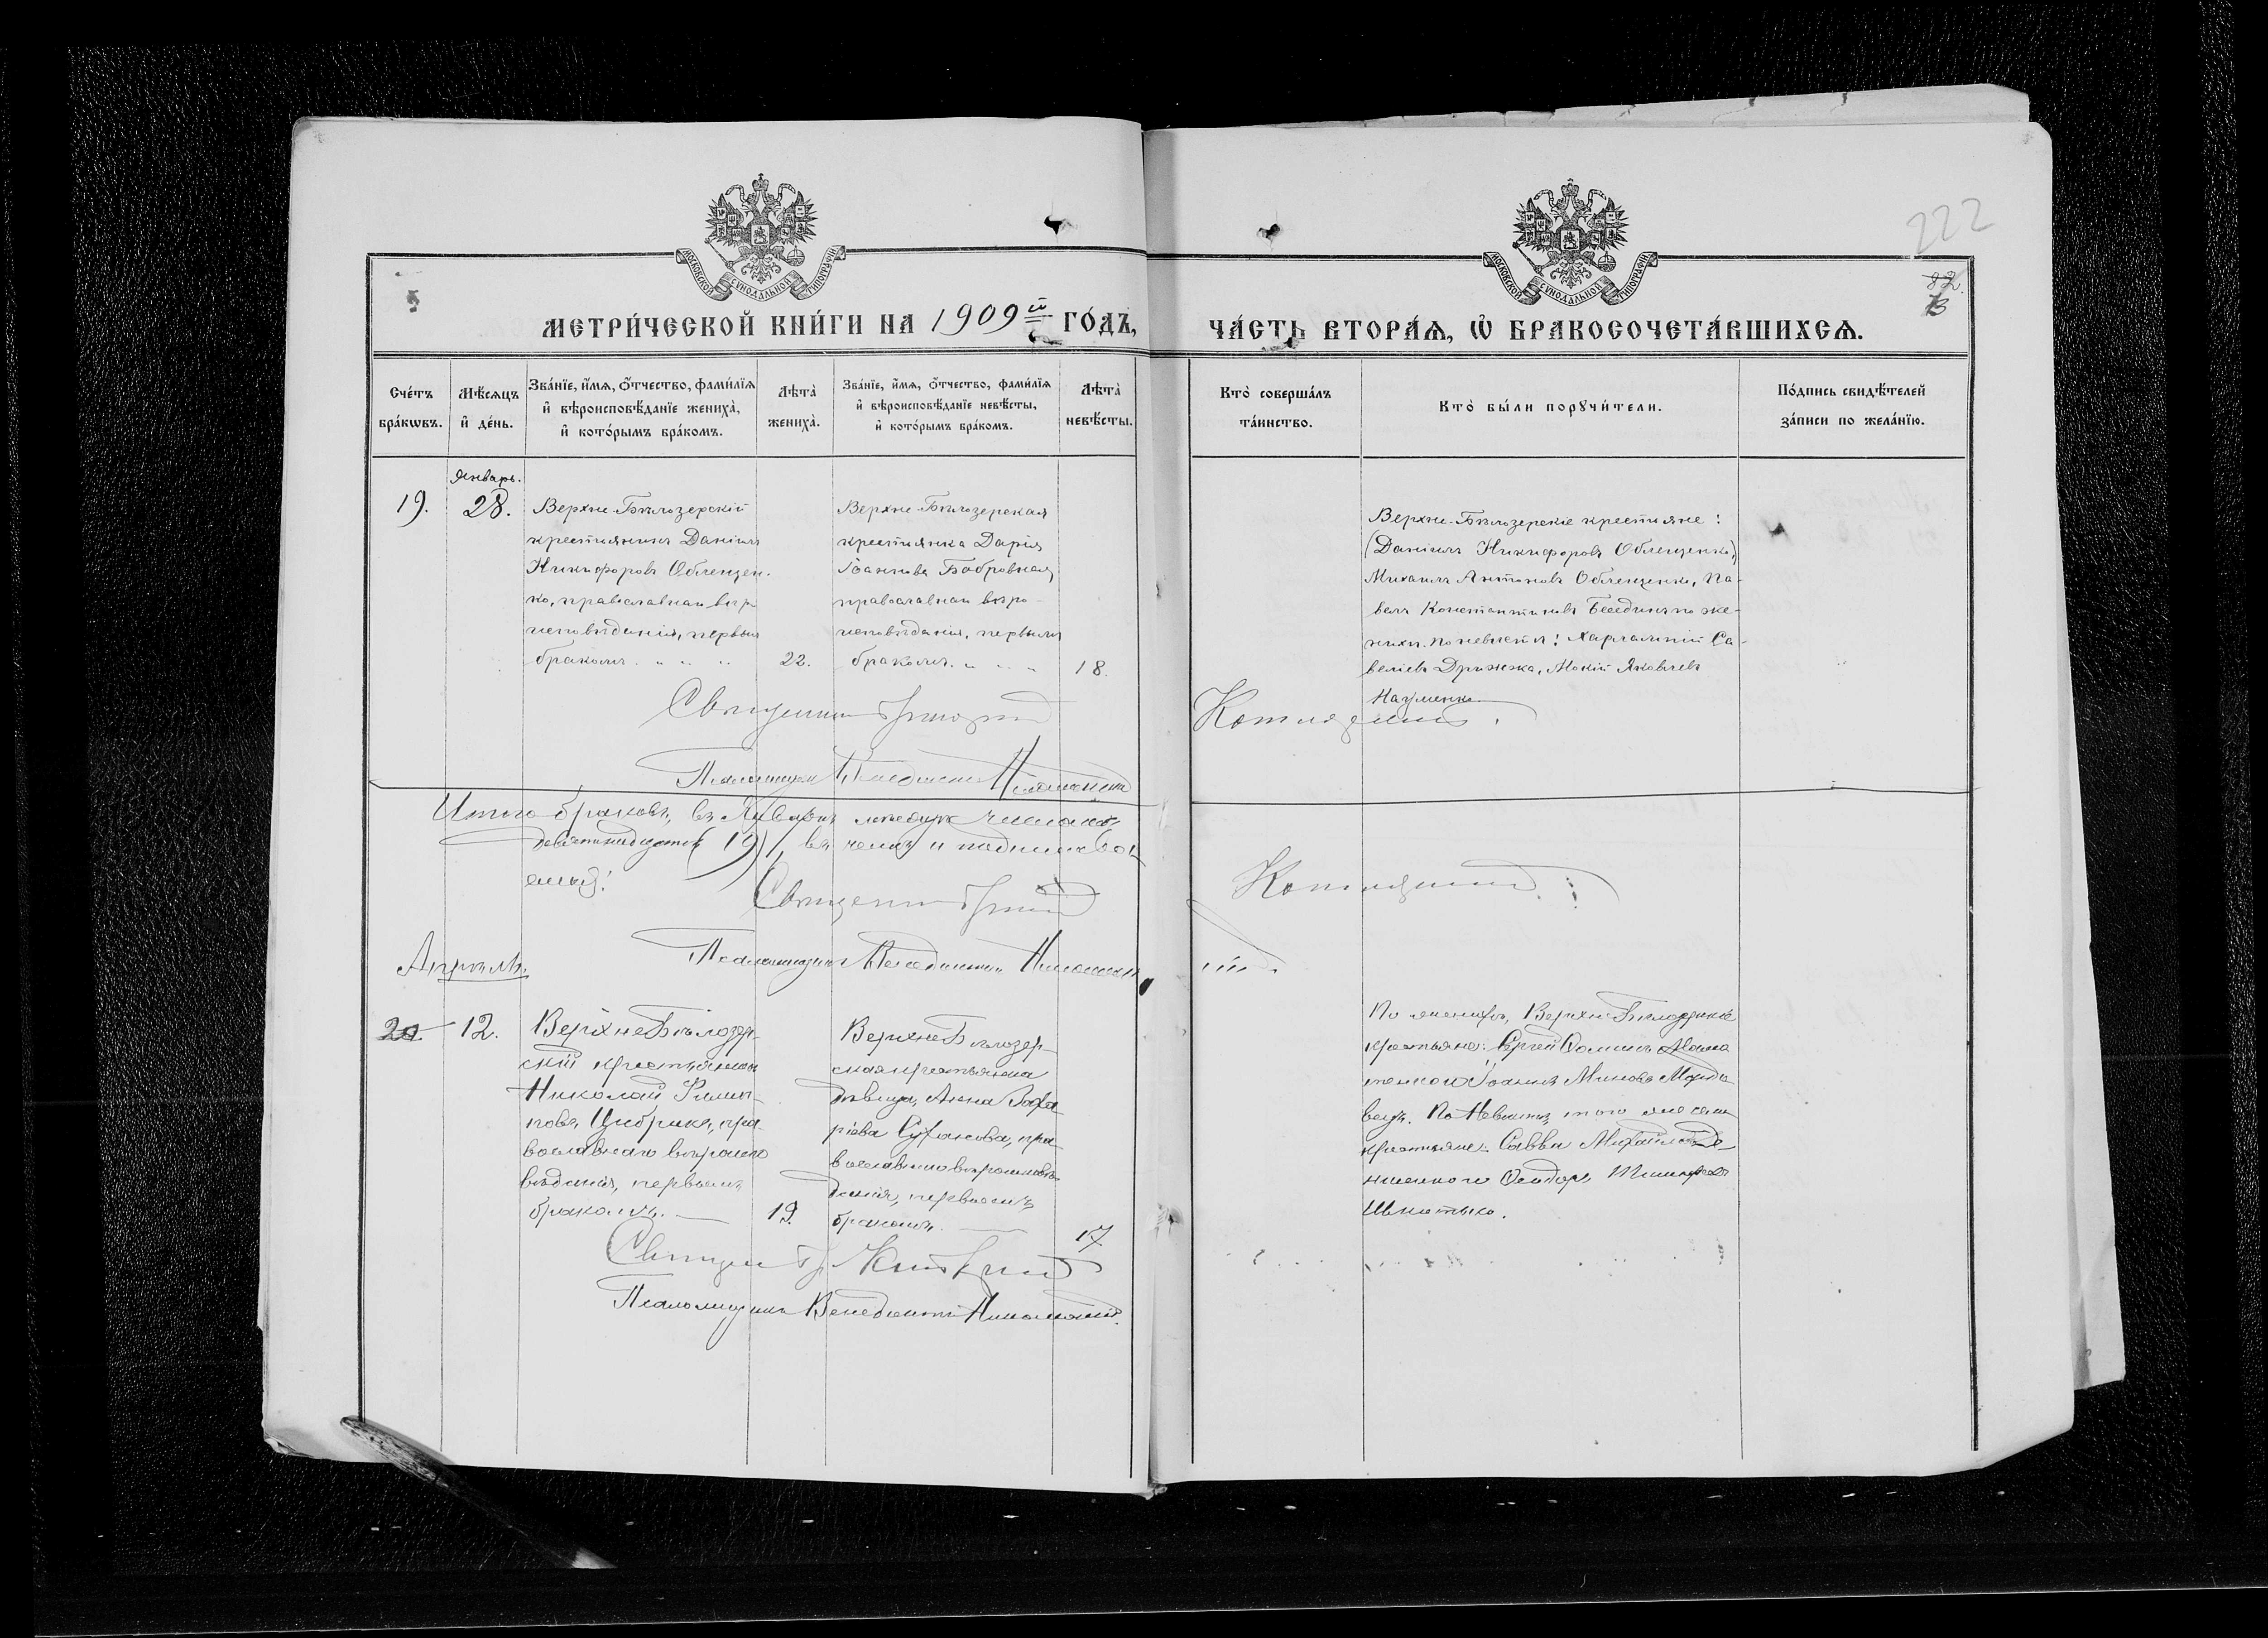 222
82
МОСКОВСКОЙ СѴНОДАЛЬНОЙ ТИПОГРАФІИ
МОСКОВСКОЙ СѴНОДАЛЬНОЙ ТИПОГРАФІИ
МЕТРИ́ЧЕСКОЙ КНИ́ГИ НА 1909й ГО́ДЪ,
ЧА́СТЬ ВТОРА́Ѧ, Ѡ҆ БРАКОСОЧЕТА́ВШИХСѦ.
Сче́тъ
бра́кѡвъ.
Мѣ́сѧцъ
и҆ де́нь.
Зва́нїе, и҆́мѧ, ѻ҆́тчество, фами́лїѧ
и҆ вѣроисповѣ́данїе жениха̀,
и҆ кото́рымъ бра́комъ.
Лѣ́та
жениха̀.
Зва́нїе, и҆́мѧ, ѻ҆́тчество, фами́лїѧ
и҆ вѣроисповѣ́данїе невѣ́сты,
и҆ кото́рымъ бра́комъ.
Лѣ́та
невѣ́сты.
Кто̀ соверша́лъ
та́инство.
Кто̀ бы́ли порꙋчи́тели.
По́дпись свидѣ́телей
за́писи по жела́нїю.
Январь.
19. 28.
Верхне-Бѣлозерскій
крестьянинъ Даніилъ
Никифоровъ Облещен-
ко, православнаго вѣро-
исповѣданія, первымъ
бракомъ. 22.
Верхне-Бѣлозерская
крестьянка Дарія
Іоаннова Бобровная,
православнаго вѣро-
исповѣданія, первымъ
бракомъ. 18.
Верхне-Бѣлозерскіе крестьяне:
(Даніилъ Никифоровъ Облещенко,)
Михаилъ Антоновъ Облещенко, Па-
велъ Константиновъ Бесединъ по же-
нихѣ. По невѣстѣ: Харлампій Са-
веліевъ Дрижжа, Мокій Яковлевъ
Науменко
Священникъ Григорій
Котляревскій.
Псаломщикъ Венедиктъ
Итого браковъ, въ Январѣ мѣсяцѣ числомъ
девятнадцать (19), въ чемъ и подписью
Священникъ
Псаломщикъ Венедиктъ
Апрѣль.
20 12.
ВерхнеБѣлозер-
скій крестьянинъ
Николай Филип-
повъ Цибрика, пра-
вославнаго вѣроиспо
вѣданія, первымъ
бракомъ. 19.
ВерхнеБѣлозер-
ская крестьянка
дѣвица, Анна Заха-
ріева Суханова, пра-
вославнаго вѣроисповѣ-
данія, первымъ
бракомъ. 17.
По женихѣ, ВерхнеБѣлозерскіе
крестьяне: Сергей Фоминъ
и Іоаннъ Миновъ
По Невѣстѣ, того же села
крестьяне: Савва Михайловъ
Священ
Псаломщикъ Венедиктъ